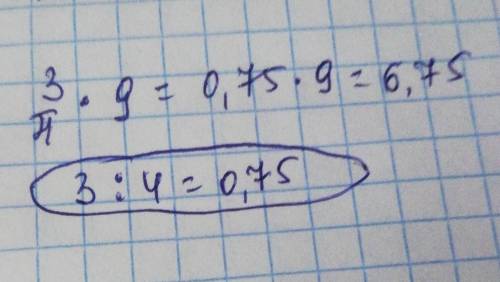 3/4 · 9 = 0,75 · 9 = 6,75
3 : 4 = 0,75